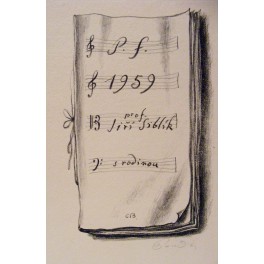 P. f.
1959
prof
Jiří Šiblík
s rodinou